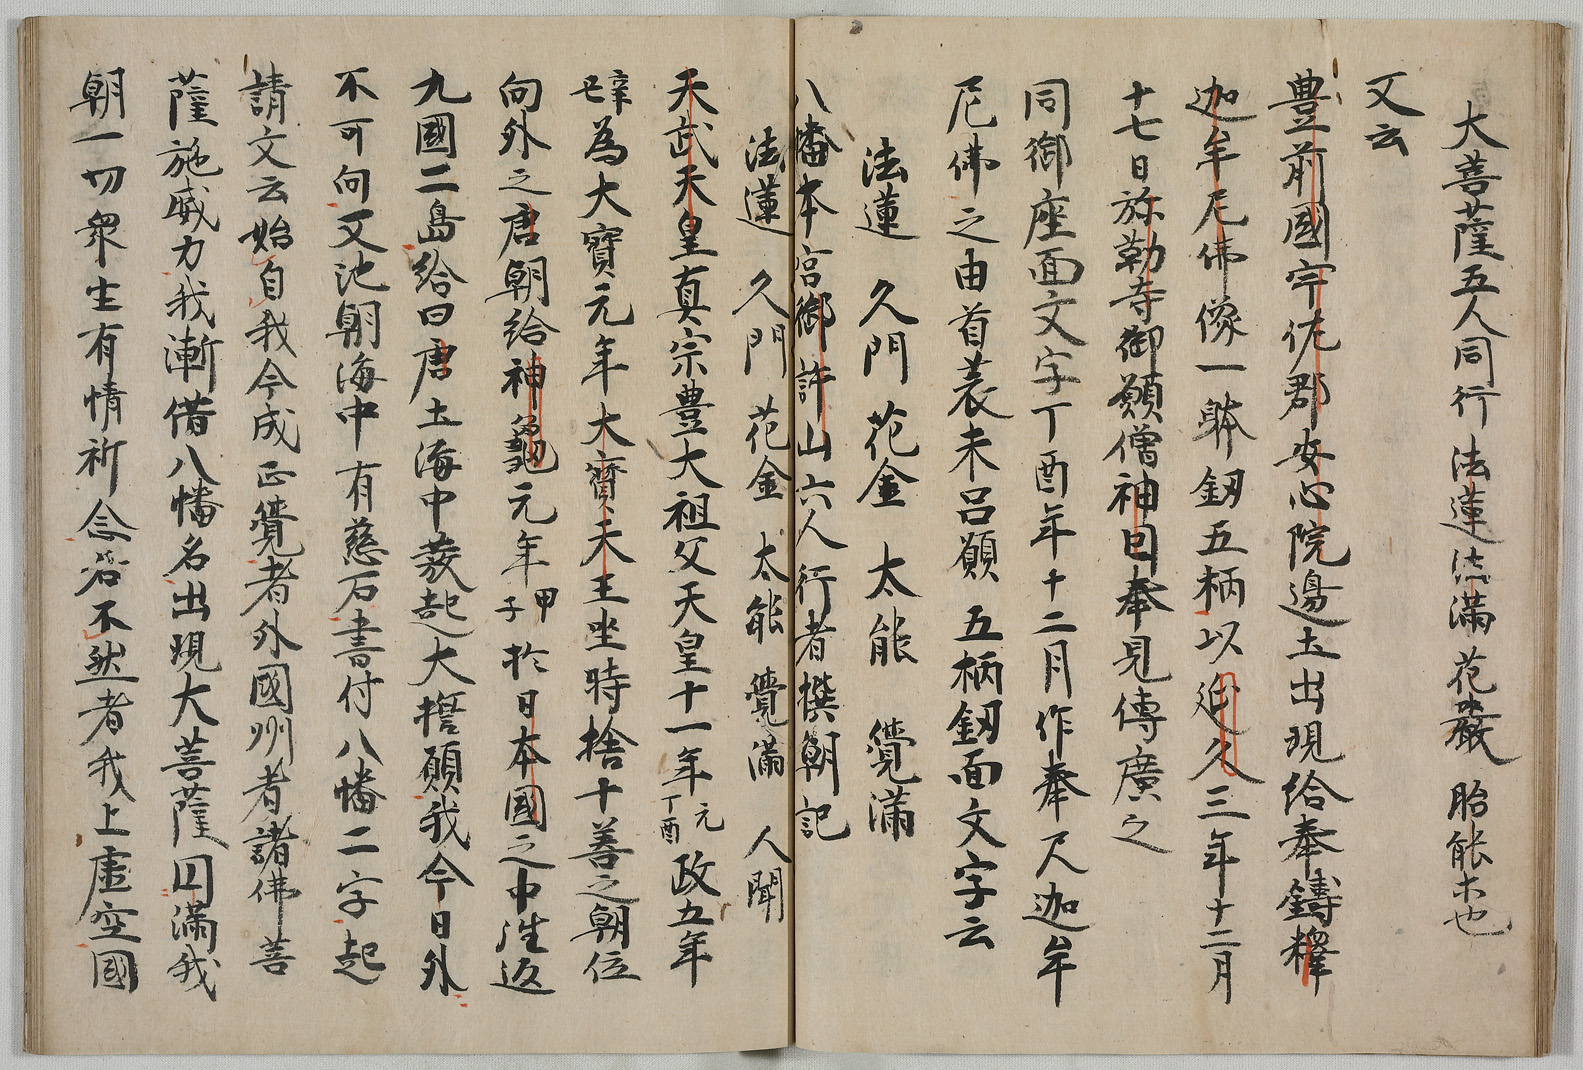 大菩薩五人同行法蓮法滿花嚴胎能木也
又云
豊前國宇佐郡安心院邊土出現給奉鑄釋
迦牟尼佛像一躰釼五柄以延久三年十二月
十七日弥勒寺御願僧神日奉見傳廣之
同御座面文字丁酉年十二月作奉尺迦牟
尼佛之由首蓑未呂願五柄釼面文字云
法蓮 久門 花金 太能 覺滿
八幡本宮御許山六人行者撰朝記
法蓮 久門 花金 太能 覺滿 人聞
天武天皇真宗豊大祖父天皇十一年元丁酉政五年
辛丑為大寳元年大寳天王坐時捨十善之朝位
向外之唐朝給神龜元年甲子於日本國之中淮返
九國二島給曰唐土海中發起大擔願我今日外
不可向又池朝海中有慈石書付八幡二字起
請文云始自我今成正覺者外國州者諸佛菩
薩施威力我漸借八幡名出現大菩薩囚滿我
朝一切衆生有情祈念若不然者我上虚空國